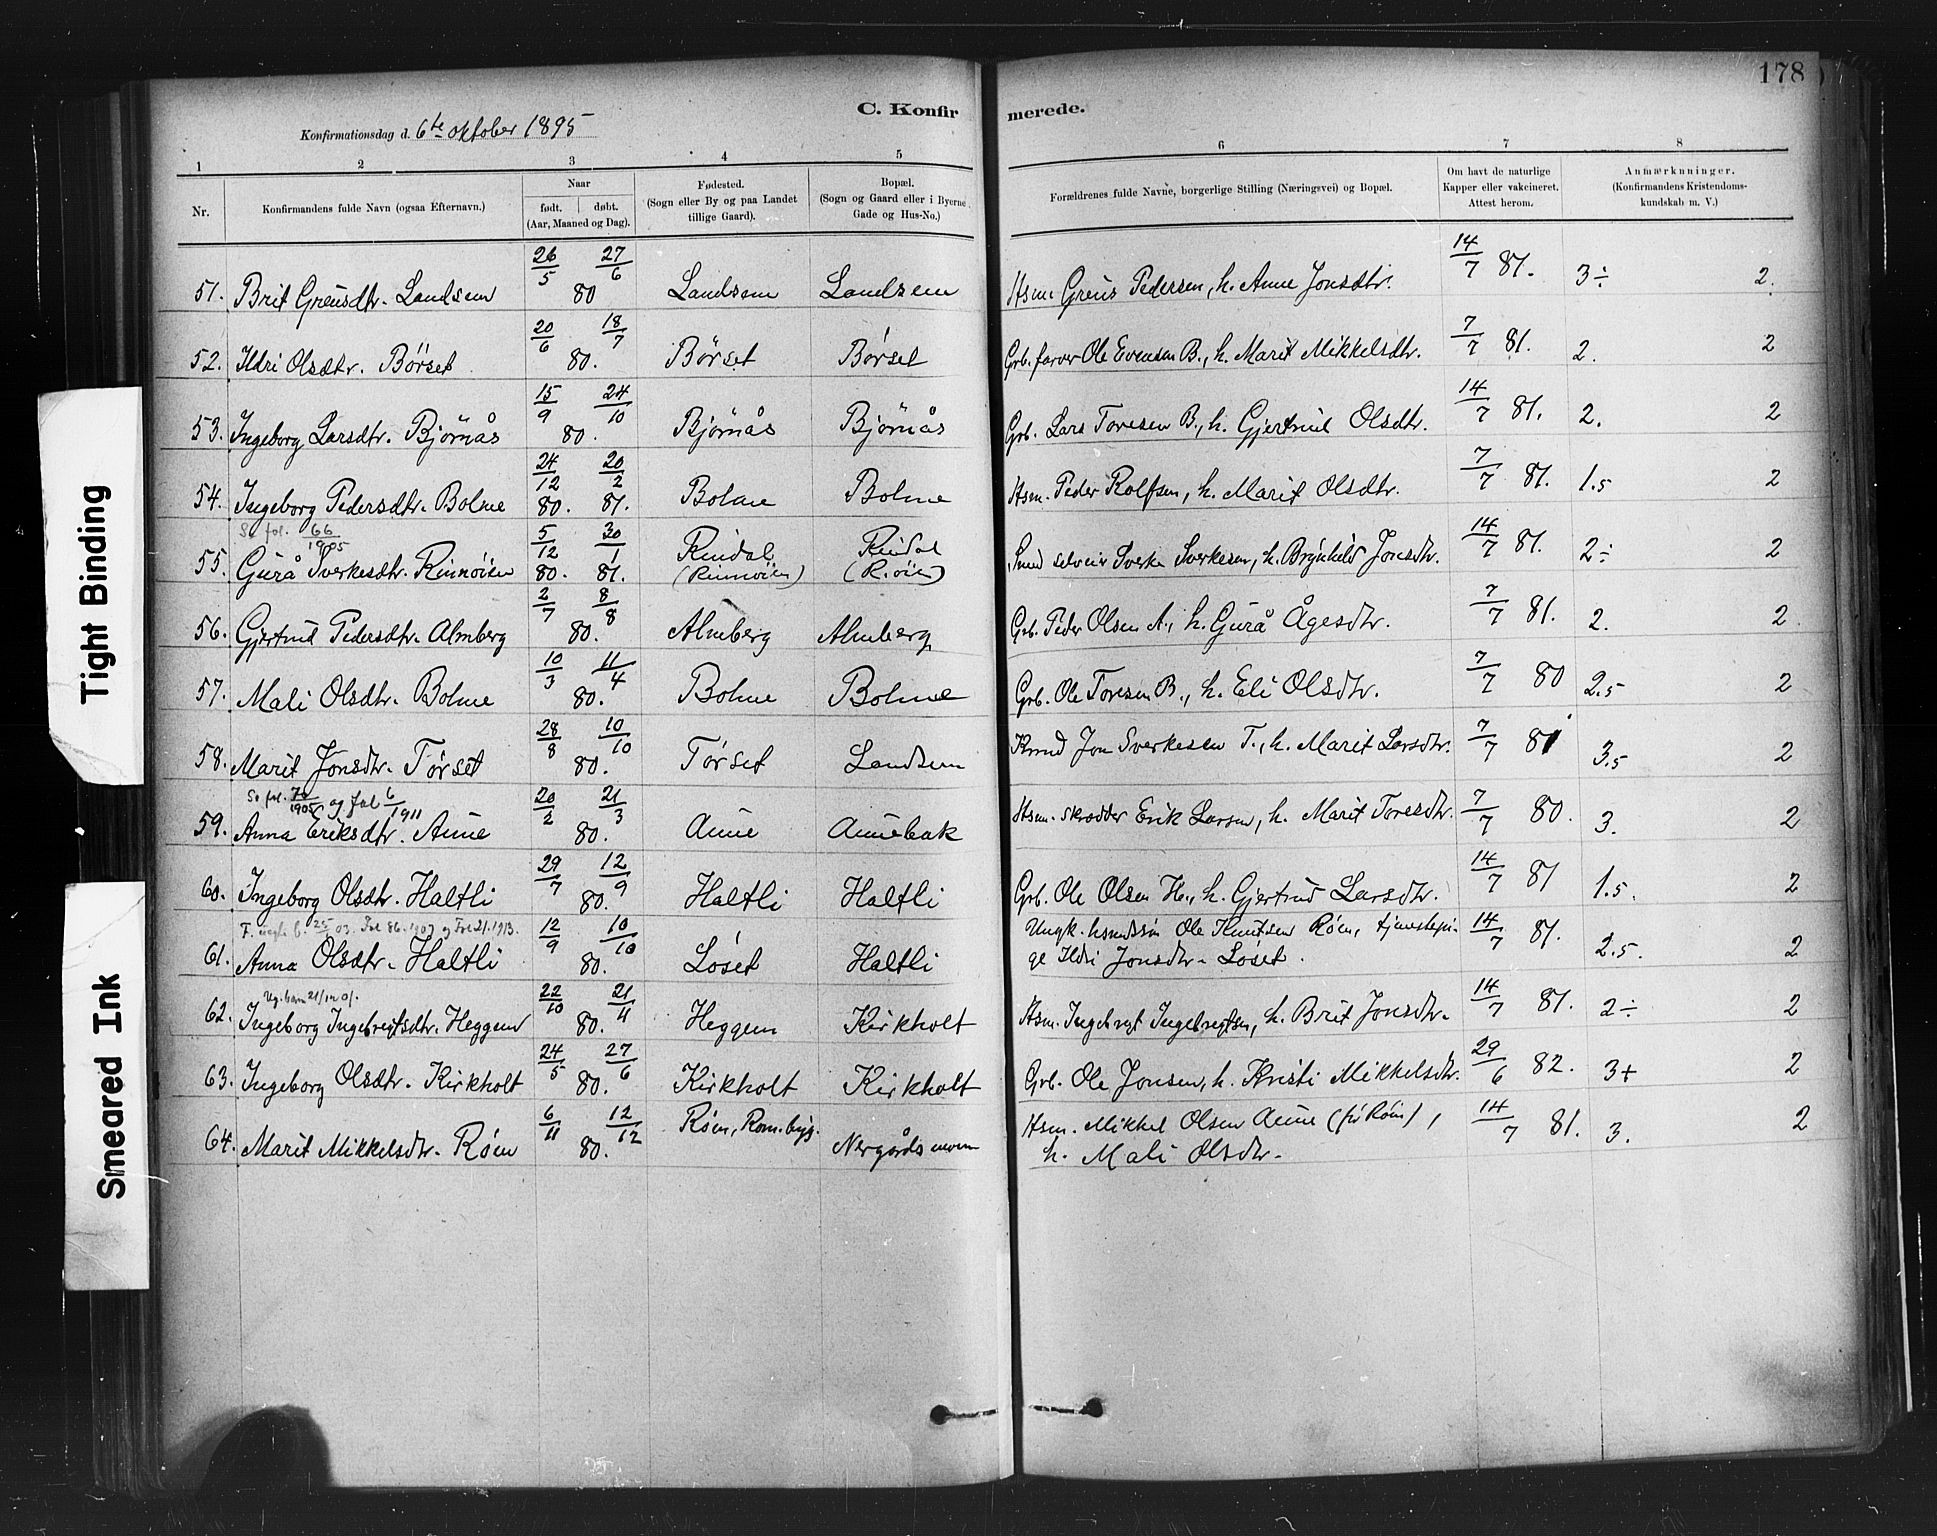 178
C. Konfirmerede.
Konfirmationsdag d. 6te oktober 1895
1 2 3 4 5 6 7 8
Nr. Konfirmandens fulde Navn (ogsaa Efternavn.) Naar født. døbt. (Aar, Maaned og Dag). Fødested. (Sogn eller By og paa Landet tillige Gaard). Bopæl. (Sogn og Gaard eller i Byerne Gade og Hus-No.) Forældrenes fulde Navne, borgerlige Stilling (Næringsvei) og Bopæl. Om havt de naturlige Kapper eller vakcineret. Attest herom. Anmærkninger. (Konfirmandens Kristendomskundskab m. V.)
51. Brit Greusdtr. Landsem 26/5 27/6 80 Landsem Landsem Hsm. Greus Pedersen, h. Anne Jonsdtr. 14/7 81. 3÷ 2.
52. Ildri Olsdtr. Børset 20/6 18/7 80. Børset Børset Grb. farver Ole Evensen B., h. Marit Mikkelsdtr. 7/7 81. 2. 2
53. Ingeborg Larsdtr. Bjørnås 15/9 24/10 80. Bjørnås Bjørnås Grb. Lars Toresen B., h. Gjertrud Olsdtr. 14/7 81. 2. 2
54. Ingeborg Pedersdtr. Bolme 24/12 80. 20/2 81. Bolme Bolme Hsm. Peder Rolfsen, h. Marit Olsdtr. 7/7 81. 1.5 2
Se fol. 66/1905
55. Gurå Sverkesdtr. Rinnøien 5/12 80. 30/1 81. Rindal (Rinnøien) Rindal (R.øien) Smed selveier Sverke Sverkesen, h. Brynhild Jonsdtr. 14/7 81. 2÷ 2
56. Gjertrud Pedersdtr. Almberg 2/7 8/8 80. Almberg Almberg Grb. Peder Olsen A., h. Gurå Ågesdtr. 7/7 81. 2. 2.
57. Mali Olsdtr. Bolme 10/3 11/4 80. Bolme Bolme Grb. Ole Toresen B., h. Eli Olsdtr. 7/7 80 2.5 2
58. Marit Jonsdtr. Tørset 28/8 10/10 80. Tørset Landsem Knud Jon Sverkesen T., h. Marit Larsdtr. 7/7 81 3.5 2
Se fol. 70/1905 og fol 6/1911
59. Anna Eriksdtr. Aune 20/2 21/3 80. Aune Aunebak Hsm. skrædder Erik Larsen, h. Marit Toresdtr. 7/7 80. 3. 2
60. Ingeborg Olsdtr. Haltli 29/7 12/9 80. Haltli Haltli Grb. Ole Olsen H., h. Gjertrud Larsdtr. 14/7 81 1.5. 2
03. Fol 86.1907 og Fol 21.1913.
61. Anna Olsdtr. Haltli 12/9 10/10 80. Løset Haltli Ungk. husmdsøn Ole Knutsen Røen, tjenestepi-
ge Ildri Jonsdtr. Løset. 14/7 81. 2.5. 2
Ug. barn 21/12 01.
62. Ingeborg Ingebregtsdtr. Heggem 22/10 21/11 80. Heggem Kirkholt Hsm. Ingebregt Ingebregtsen, h. Brit Jonsdtr. 14/7 81. 2÷ 2
63. Ingeborg Olsdtr. Kirkholt 24/5 27/6 80. Kirkholt Kirkholt Grb. Ole Jonsen, h. Kristi Mikkelsdtr. 29/6 82. 3+ 2
64. Marit Mikkelsdtr. Røen 6/11 12/12 80. Røen, Rom.byg. Nergårdsmoen Hsm. Mikkel Olsen Aune (før Røen),
h. Mali Olsdtr. 14/7 81. 3. 2
Tight Binding
Smeared Ink